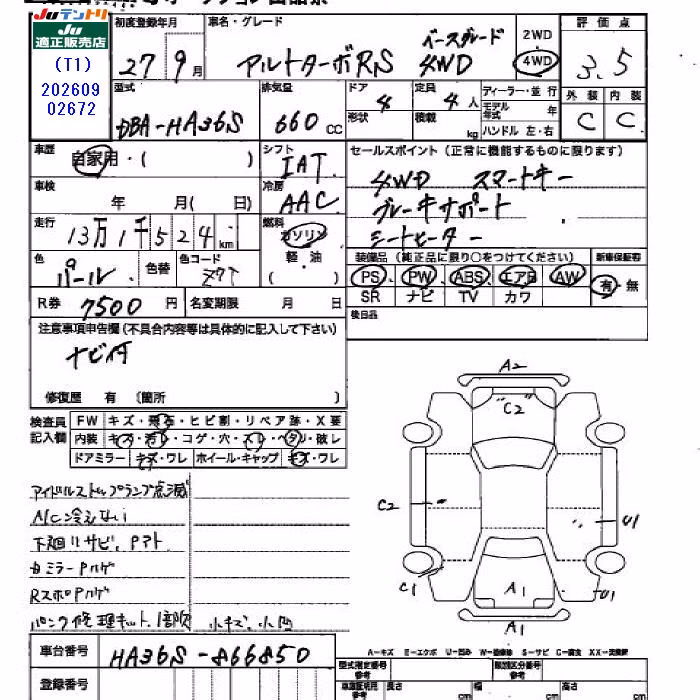 Juテントリ
Ju
適正販売店
(T1)
202609
02672
初度登録年月
27年9月
車名・グレード
アルトターボRS 4WD
ベースグレード
2WD
4WD
評価点
3.5
外装 内装
C C
型式
DBA-HA36S
排気量
660 cc
ドア
4
形状
定員
4人
積載
kg
ディーラー・並行
モデル年式 年
ハンドル 左・右
車歴
自家用・( )
シフト
IAT
冷房
AAC
車検
年 月( 日)
走行
13万1千524km
燃料
ガソリン
軽・油
( )
色
パール
色替
色コード
Z7T
R券
7500円
名変期限 月 日
セールスポイント(正常に機能するものに限ります)
4WD スマートキー
ブレーキサポート
シートヒーター
装備品(純正品に限り○をつけてください)
新車保証書
PS PW ABS エアB AW
有・無
SR ナビ TV カワ
後日品
注意事項申告欄(不具合内容等は具体的に記入して下さい)
ナビ付
修復歴 有 〔箇所 〕
検査員
記入欄
FW キズ・飛石・ヒビ割・リペア跡・X要
内装 キズ・汚レ・コゲ・穴・スレ・ヘタリ・破レ
ドアミラー キズ・ワレ ホイール・キャップ キズ・ワレ
アイドルストップランプ点滅
A/C冷えない
下廻りサビ、Pアト
ミラーPハゲ
RスポPハゲ
パンク修理キット、1部欠 小キズ、小凹
A2
"C2"
C2
U1
C1
A1
U1
A1
A-キズ E-エクボ U-凹み W-補修跡 S-サビ C-腐食 XX-交換歴
車台番号
HA36S-866850
登録番号
型式指定番号
類別区分番号
長さ cm
幅 cm
高さ cm